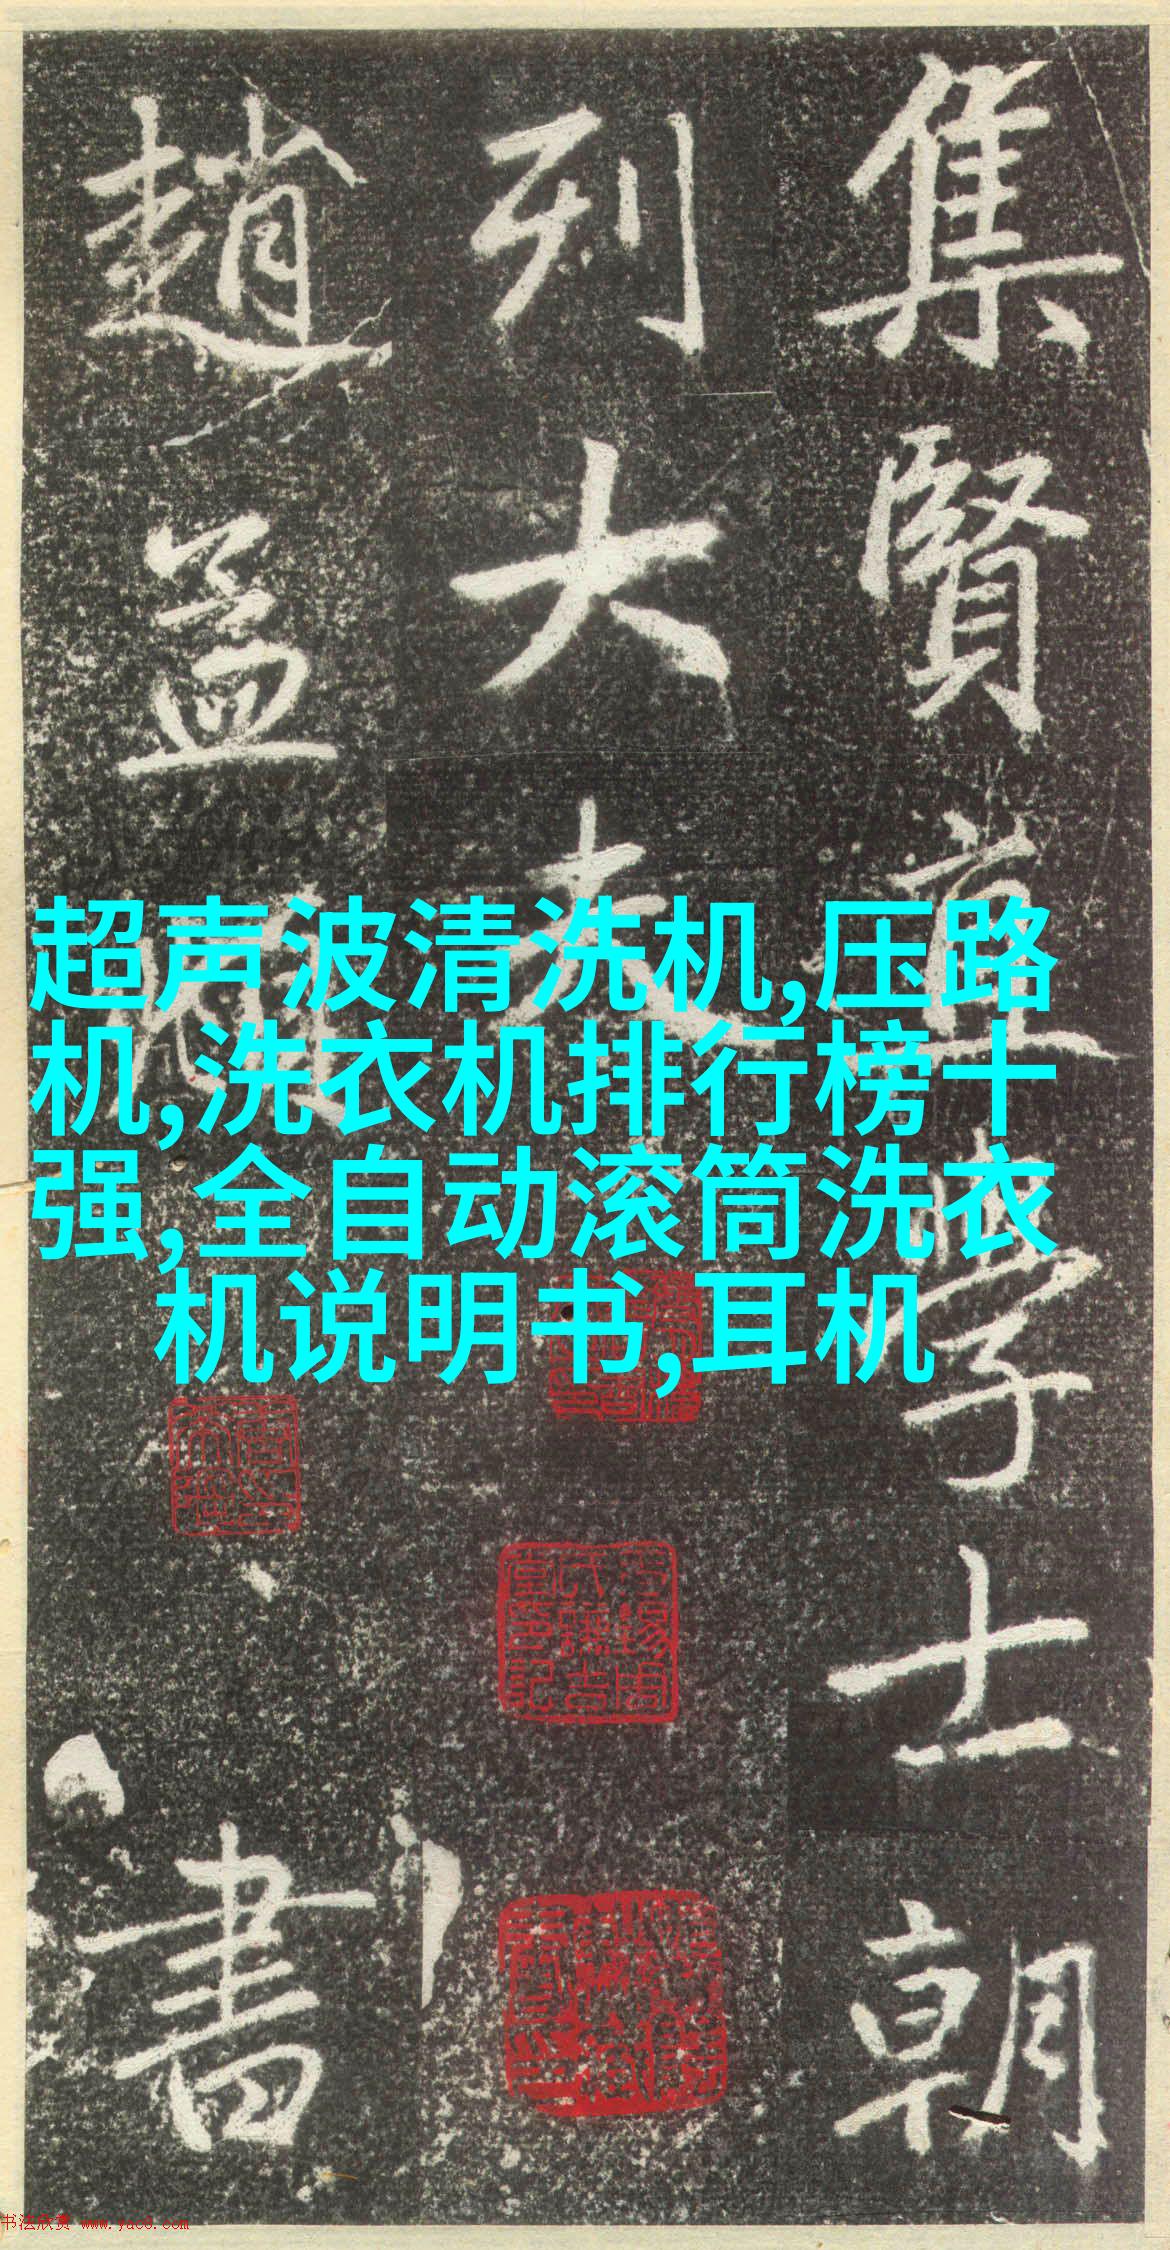 集賢直學士朝
列大夫
趙孟頫
書
超声波清洗机,压路
机,洗衣机排行榜十
强,全自动滚筒洗衣
机说明书,耳机
书法欣赏 www.yac8.com